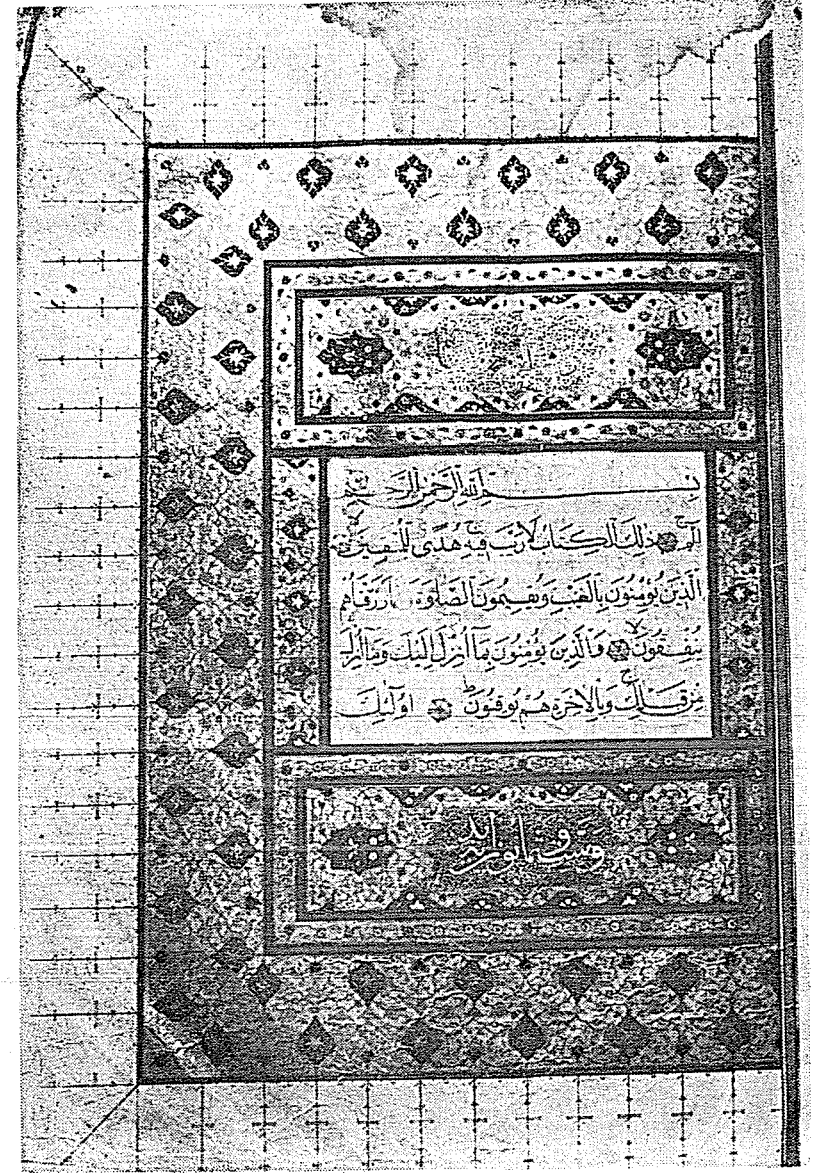 بِسْمِ اللَّهِ الرَّحْمَنِ الرَّحِيمِ
الم ذَلِكَ الْكِتَابُ لَا رَيْبَ فِيهِ هُدًى لِلْمُتَّقِينَ
الَّذِينَ يُؤْمِنُونَ بِالْغَيْبِ وَيُقِيمُونَ الصَّلٰوةَ رَزَقْنَاهُمْ
يُنْفِقُونَ وَالَّذِينَ يُؤْمِنُونَ بِمَا أُنْزِلَ إِلَيْكَ وَمَا أُنْزِلَ
مِنْ قَبْلِكَ وَبِالْآخِرَةِ هُمْ يُوقِنُونَ أُولٰئِكَ
وست وثمانون اية